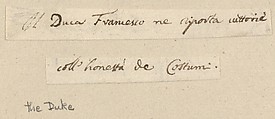 Il Duca Francesco ne riporta vittoria
coll' honestà de Costumi.
the Duke